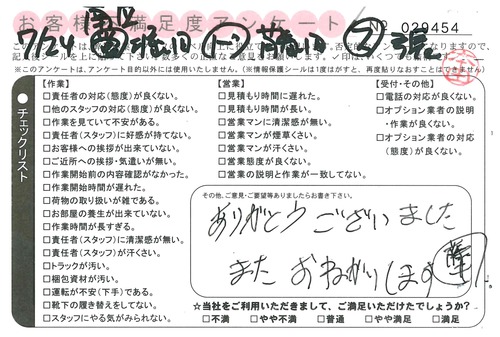 お客様満足度アンケート
№ 029454
7/24
※このアンケートは、アンケート目的以外には使用いたしません。（※情報保護シールは1度はがすと、再度貼りなおすことはできません）
チェックリスト
【作業】
□責任者の対応（態度）が良くない。
□他のスタッフの対応（態度）が良くない。
□作業を見ていて不安がある。
□責任者（スタッフ）に好感が持てない。
□お客様への挨拶が出来ていない。
□ご近所への挨拶・気遣いが無い。
□作業開始前の内容確認がなかった。
□作業開始時間が遅れた。
□荷物の取り扱いが雑である。
□お部屋の養生が出来ていない。
□作業時間が長すぎる。
□責任者（スタッフ）に清潔感が無い。
□責任者（スタッフ）が汗くさい。
□トラックが汚い。
□梱包資材が汚い。
□運転が不安（下手）である。
□靴下の履き替えをしてない。
□スタッフにやる気がみられない。
【営業】
□見積もり時間に遅れた。
□見積もり時間が長い。
□営業マンに清潔感が無い。
□営業マンが煙草くさい。
□営業マンが汗くさい。
□営業態度が良くない。
□営業の説明と作業が一致してない。
【受付・その他】
□電話の対応が良くない。
□オプション業者の説明
・作業が良くない。
□オプション業者の対応
（態度）が良くない。
その他、ご意見・ご要望等ありましたらお書き下さい。
ありがとうございました
またおねがいします
☆当社をご利用いただきまして、ご満足いただけたでしょうか？
□不満 □やや不満 □普通 □やや満足 □満足